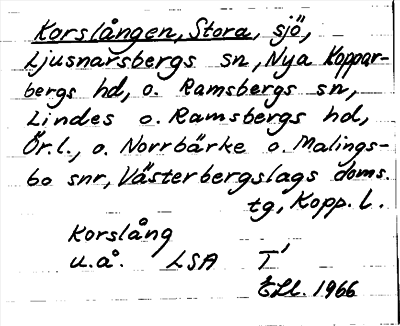 Korslången, Stora, sjö,
Ljusnarsbergs sn, Nya Koppar-
bergs hd, o. Ramsbergs sn,
Lindes o. Ramsbergs hd,
Ör.l., o. Norrbärke o. Malings-
bo snr, Västerbergslags doms.
tg, Kopp. l.
Korslång
u.å. LSA T'
Ell. 1966